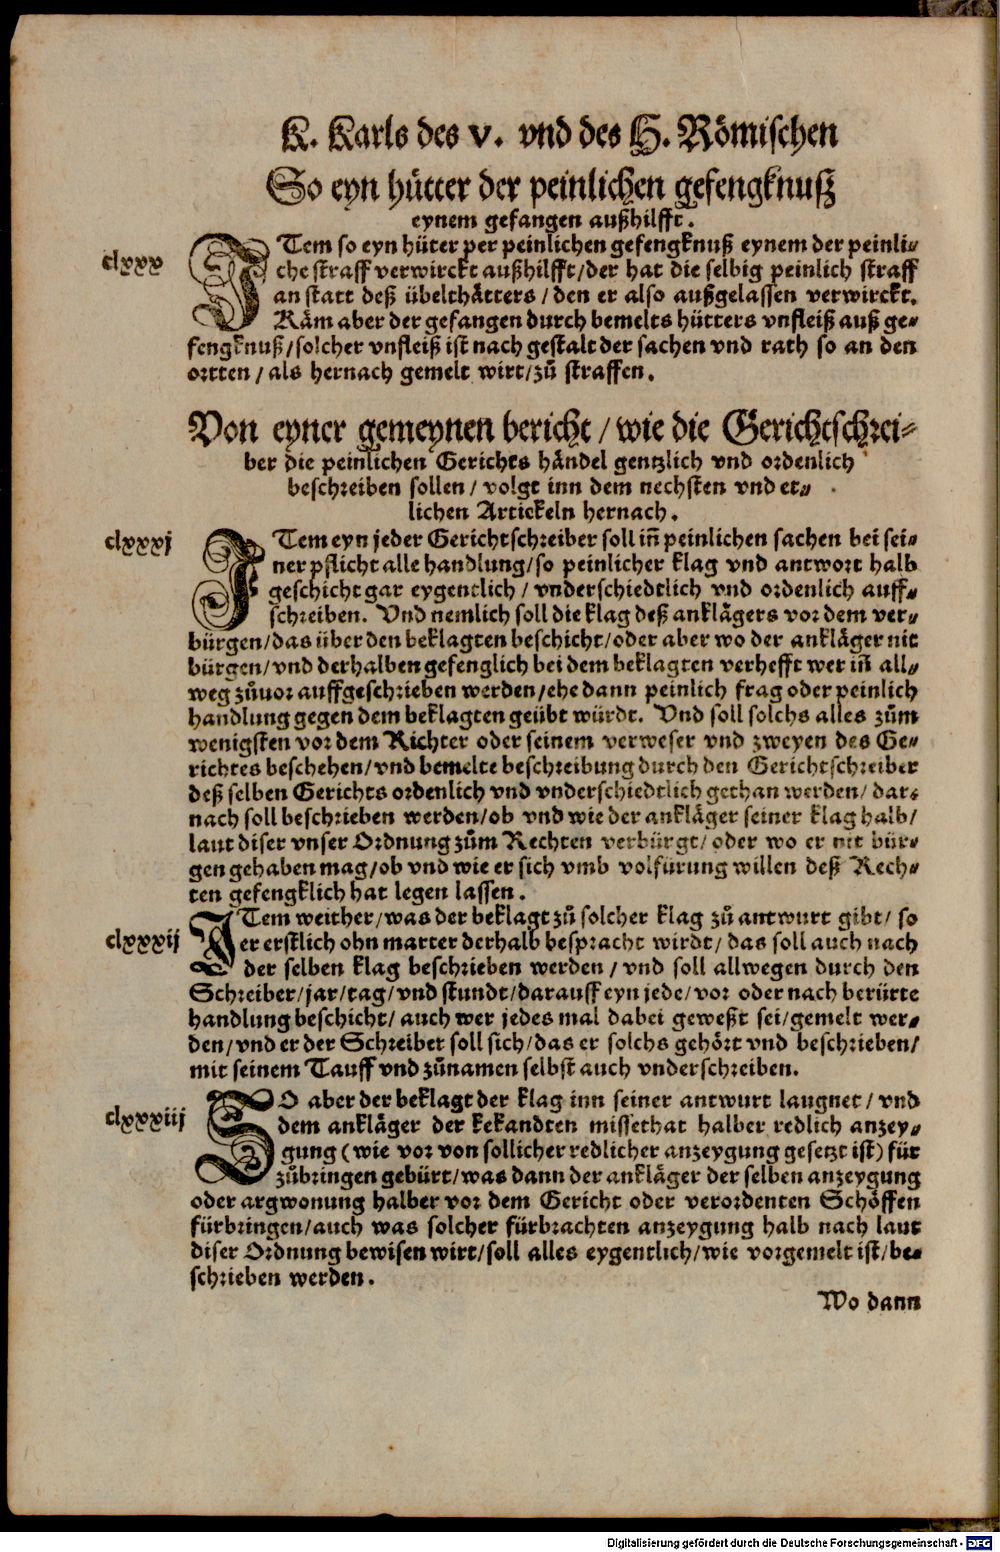 K. Karls des v. vnd des H. Römischen
So eyn hütter der peinlichen gefengknuß
eynem gefangen außhilfft.
clxxx
ITem so eyn hüter per peinlichen gefengknuß eynem der peinli⸗
che straff verwirckt außhilfft/der hat die selbig peinlich straff
an statt deß übelthätters / den er also außgelassen verwirckt.
Käm aber der gefangen durch bemelts hütters vnfleiß auß ge⸗
fengknuß/solcher vnfleiß ist nach gestalt der sachen vnd rath so an den
ortten / als hernach gemelt wirt/zů straffen.
Von eyner gemeynen bericht / wie die Gerichtschrei⸗
ber die peinlichen Gerichts händel gentzlich vnd ordenlich
beschreiben sollen / volgt inn dem nechsten vnd et⸗
lichen Artickeln hernach.
clxxxj
ITem eyn jeder Gerichtschreiber soll iñ peinlichen sachen bei sei⸗
ner pflicht alle handlung/so peinlicher klag vnd antwort halb
geschicht gar eygentlich / vnderschiedtlich vnd ordenlich auff⸗
schreiben. Vnd nemlich soll die klag deß anklägers vor dem ver⸗
bürgen/das über den beklagten beschicht/oder aber wo der ankläger nit
bürgen/vnd derhalben gefenglich bei dem beklagten verhefft wer iñ all⸗
weg zůuor auffgeschrieben werden/ehe dann peinlich frag oder peinlich
handlung gegen dem beklagten geübt würdt. Vnd soll solchs alles zům
wenigsten vor dem Richter oder seinem verweser vnd zweyen des Ge⸗
richtes beschehen/vnd bemelte beschreibung durch den Gerichtschreiber
deß selben Gerichts ordenlich vnd vnderschiedtlich gethan werden/ dar⸗
nach soll beschrieben werden/ob vnd wie der ankläger seiner klag halb/
laut diser vnser Ordnung zům Rechten verbürgt/ oder wo er nit bür⸗
gen gehaben mag/ob vnd wie er sich vmb volfürung willen deß Rech⸗
ten gefengklich hat legen lassen.
clxxxij
ITem weither/was der beklagt zů solcher klag zů antwurt gibt/ so
er erstlich ohn marter derhalb bespracht wirdt/ das soll auch nach
der selben klag beschrieben werden / vnd soll allwegen durch den
Schreiber/jar/tag/vnd stundt/darauff eyn jede/vor oder nach berürte
handlung beschicht/ auch wer jedes mal dabei geweßt sei/gemelt wer⸗
den/vnd er der Schreiber soll sich/das er solchs gehört vnd beschrieben/
mit seinem Tauff vnd zůnamen selbst auch vnderschreiben.
clxxxiij
SO aber der beklagt der klag inn seiner antwurt laugnet / vnd
dem ankläger der kekandten missethat halber redlich anzey⸗
gung (wie vor von sollicher redlicher anzeygung gesetzt ist) für
zůbringen gebürt/was dann der ankläger der selben anzeygung
oder argwonung halber vor dem Gericht oder verordenten Schöffen
fürbringen/auch was solcher fürbrachten anzeygung halb nach laut
diser Ordnung bewisen wirt/soll alles eygentlich/wie vorgemelt ist/be⸗
schrieben werden.
Wo dann
Digitalisierung gefördert durch die Deutsche Forschungsgemeinschaft - DFG